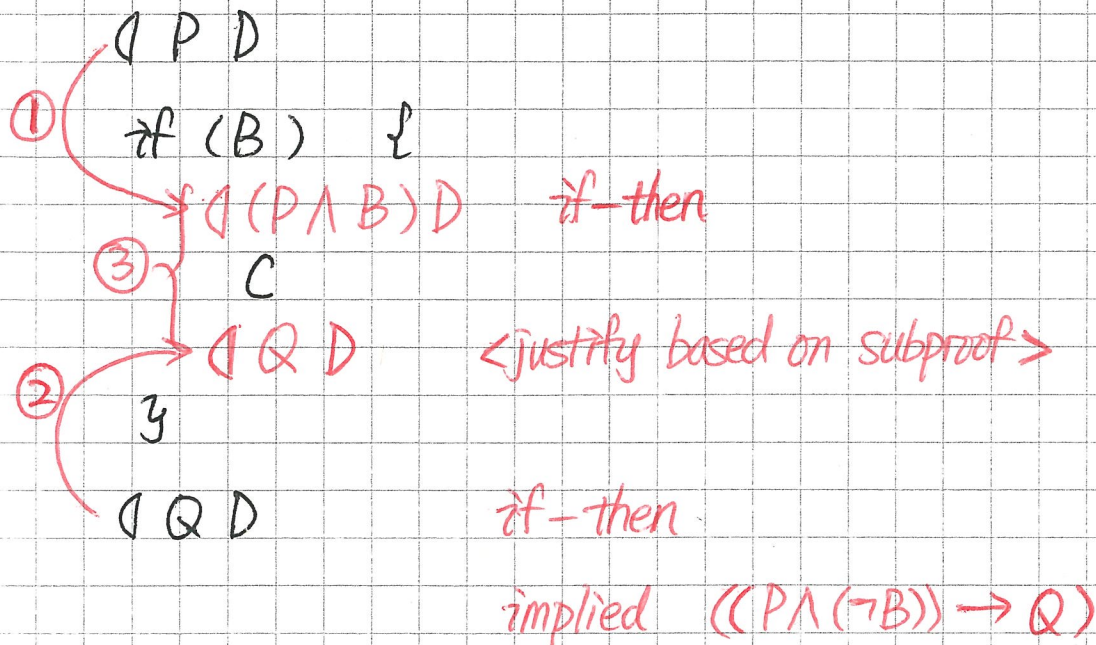 ⦇ P ⦈
①
if (B) {
⦇(P ∧ B)⦈ if-then
③
C
⦇ Q ⦈ <justify based on subproof>
②
}
⦇ Q ⦈ if-then
implied ((P∧(¬B)) → Q)